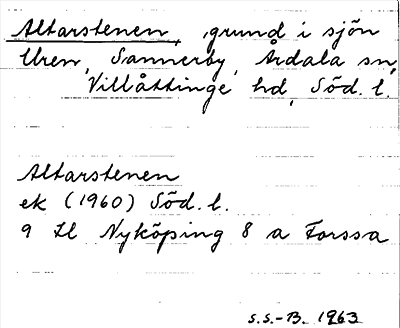 Altarstenen, grund i sjön
Uren, Sannerby, Årdala sn,
Villåttinge hd, Söd. l.
Altarstenen
ek (1960) Söd. l.
9 H Nyköping 8 a Forssa
S.S.-B. 1963